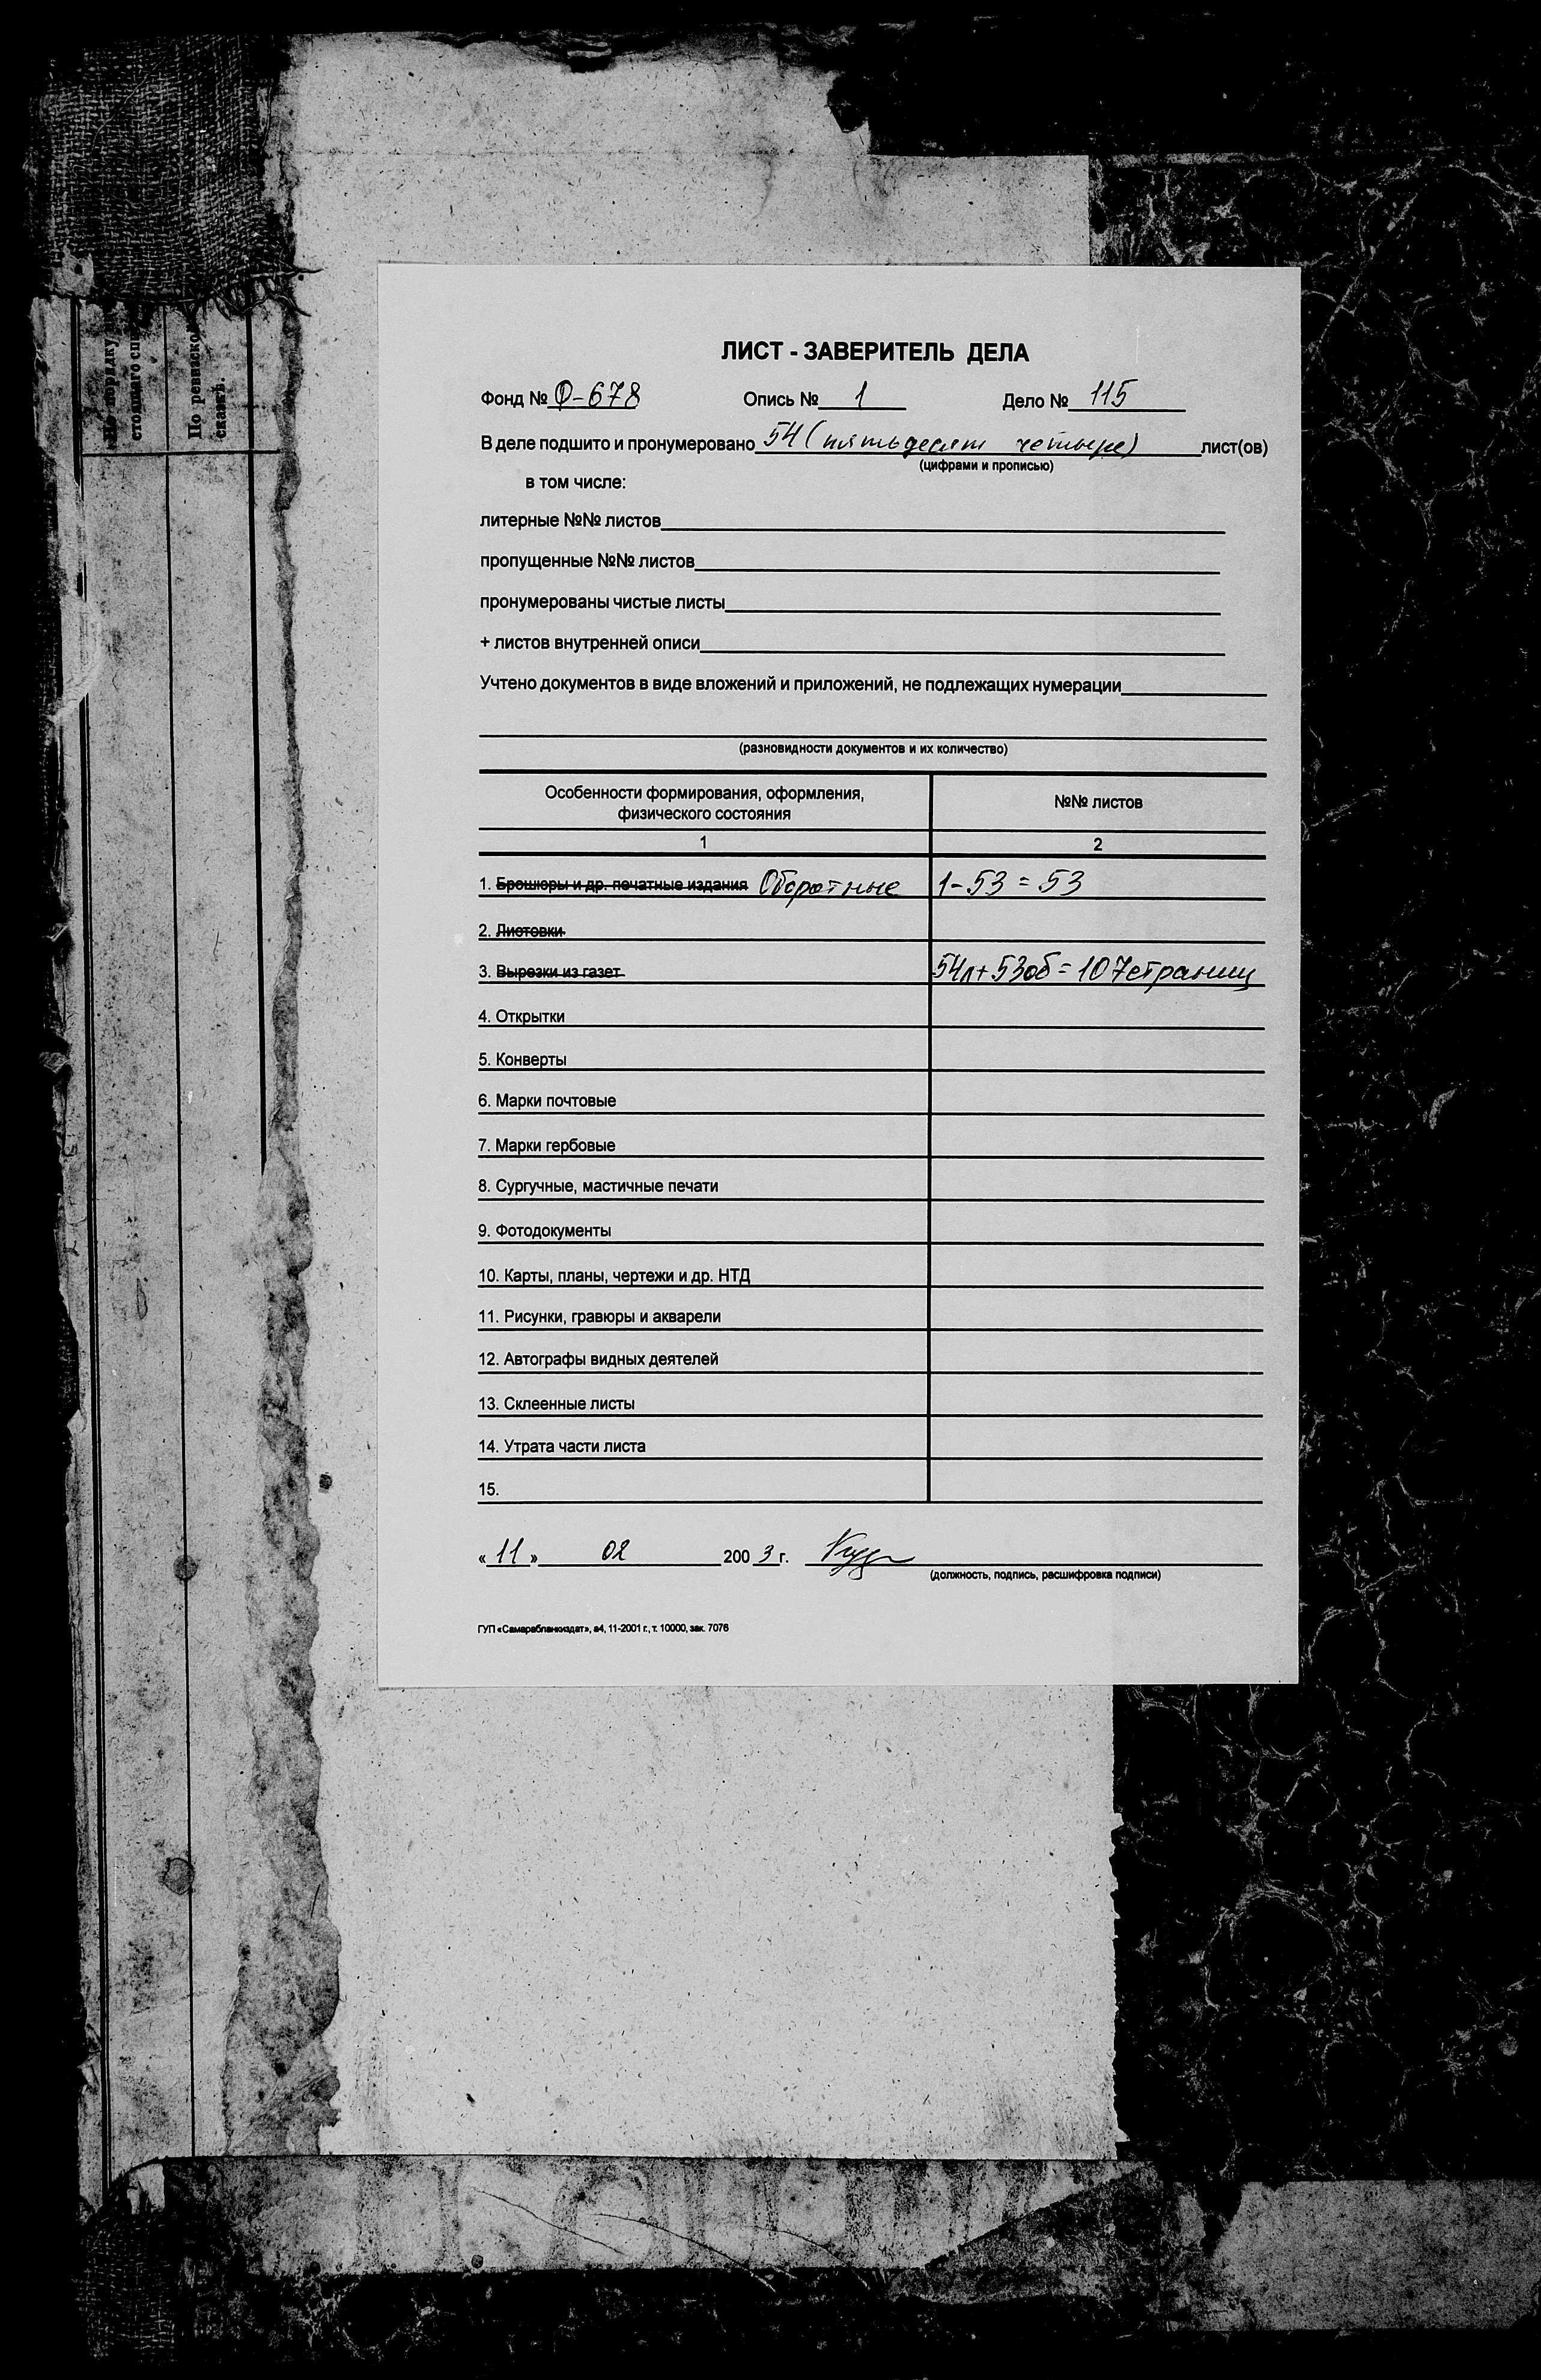 ЛИСТ - ЗАВЕРИТЕЛЬ ДЕЛА
Фонд № Ф-678 Опись № 1 Дело № 115
В деле подшито и пронумеровано 54 (пятьдесят четыре) лист(ов)
(цифрами и прописью)
в том числе:
литерные №№ листов
пропущенные №№ листов
пронумерованы чистые листы
+ листов внутренней описи
Учтено документов в виде вложений и приложений, не подлежащих нумерации
(разновидности документов и их количество)
Особенности формирования, оформления, №№ листов
физического состояния
1 2
1. Брошюры и др. печатные издания Оборотные 1-53 = 53
2. Листовки
3. Вырезки из газет 54л+53об = 107страниц
4. Открытки
5. Конверты
6. Марки почтовые
7. Марки гербовые
8. Сургучные, мастичные печати
9. Фотодокументы
10. Карты, планы, чертежи и др. НТД
11. Рисунки, гравюры и акварели
12. Автографы видных деятелей
13. Склеенные листы
14. Утрата части листа
15.
«11» 02 2003 г.
(должность, подпись, расшифровка подписи)
ГУП «Самарабланкиздат», а4, 11-2001 г., т. 10000, зак. 7076
порядку
стоящаго
По ревизско
сказкѣ.